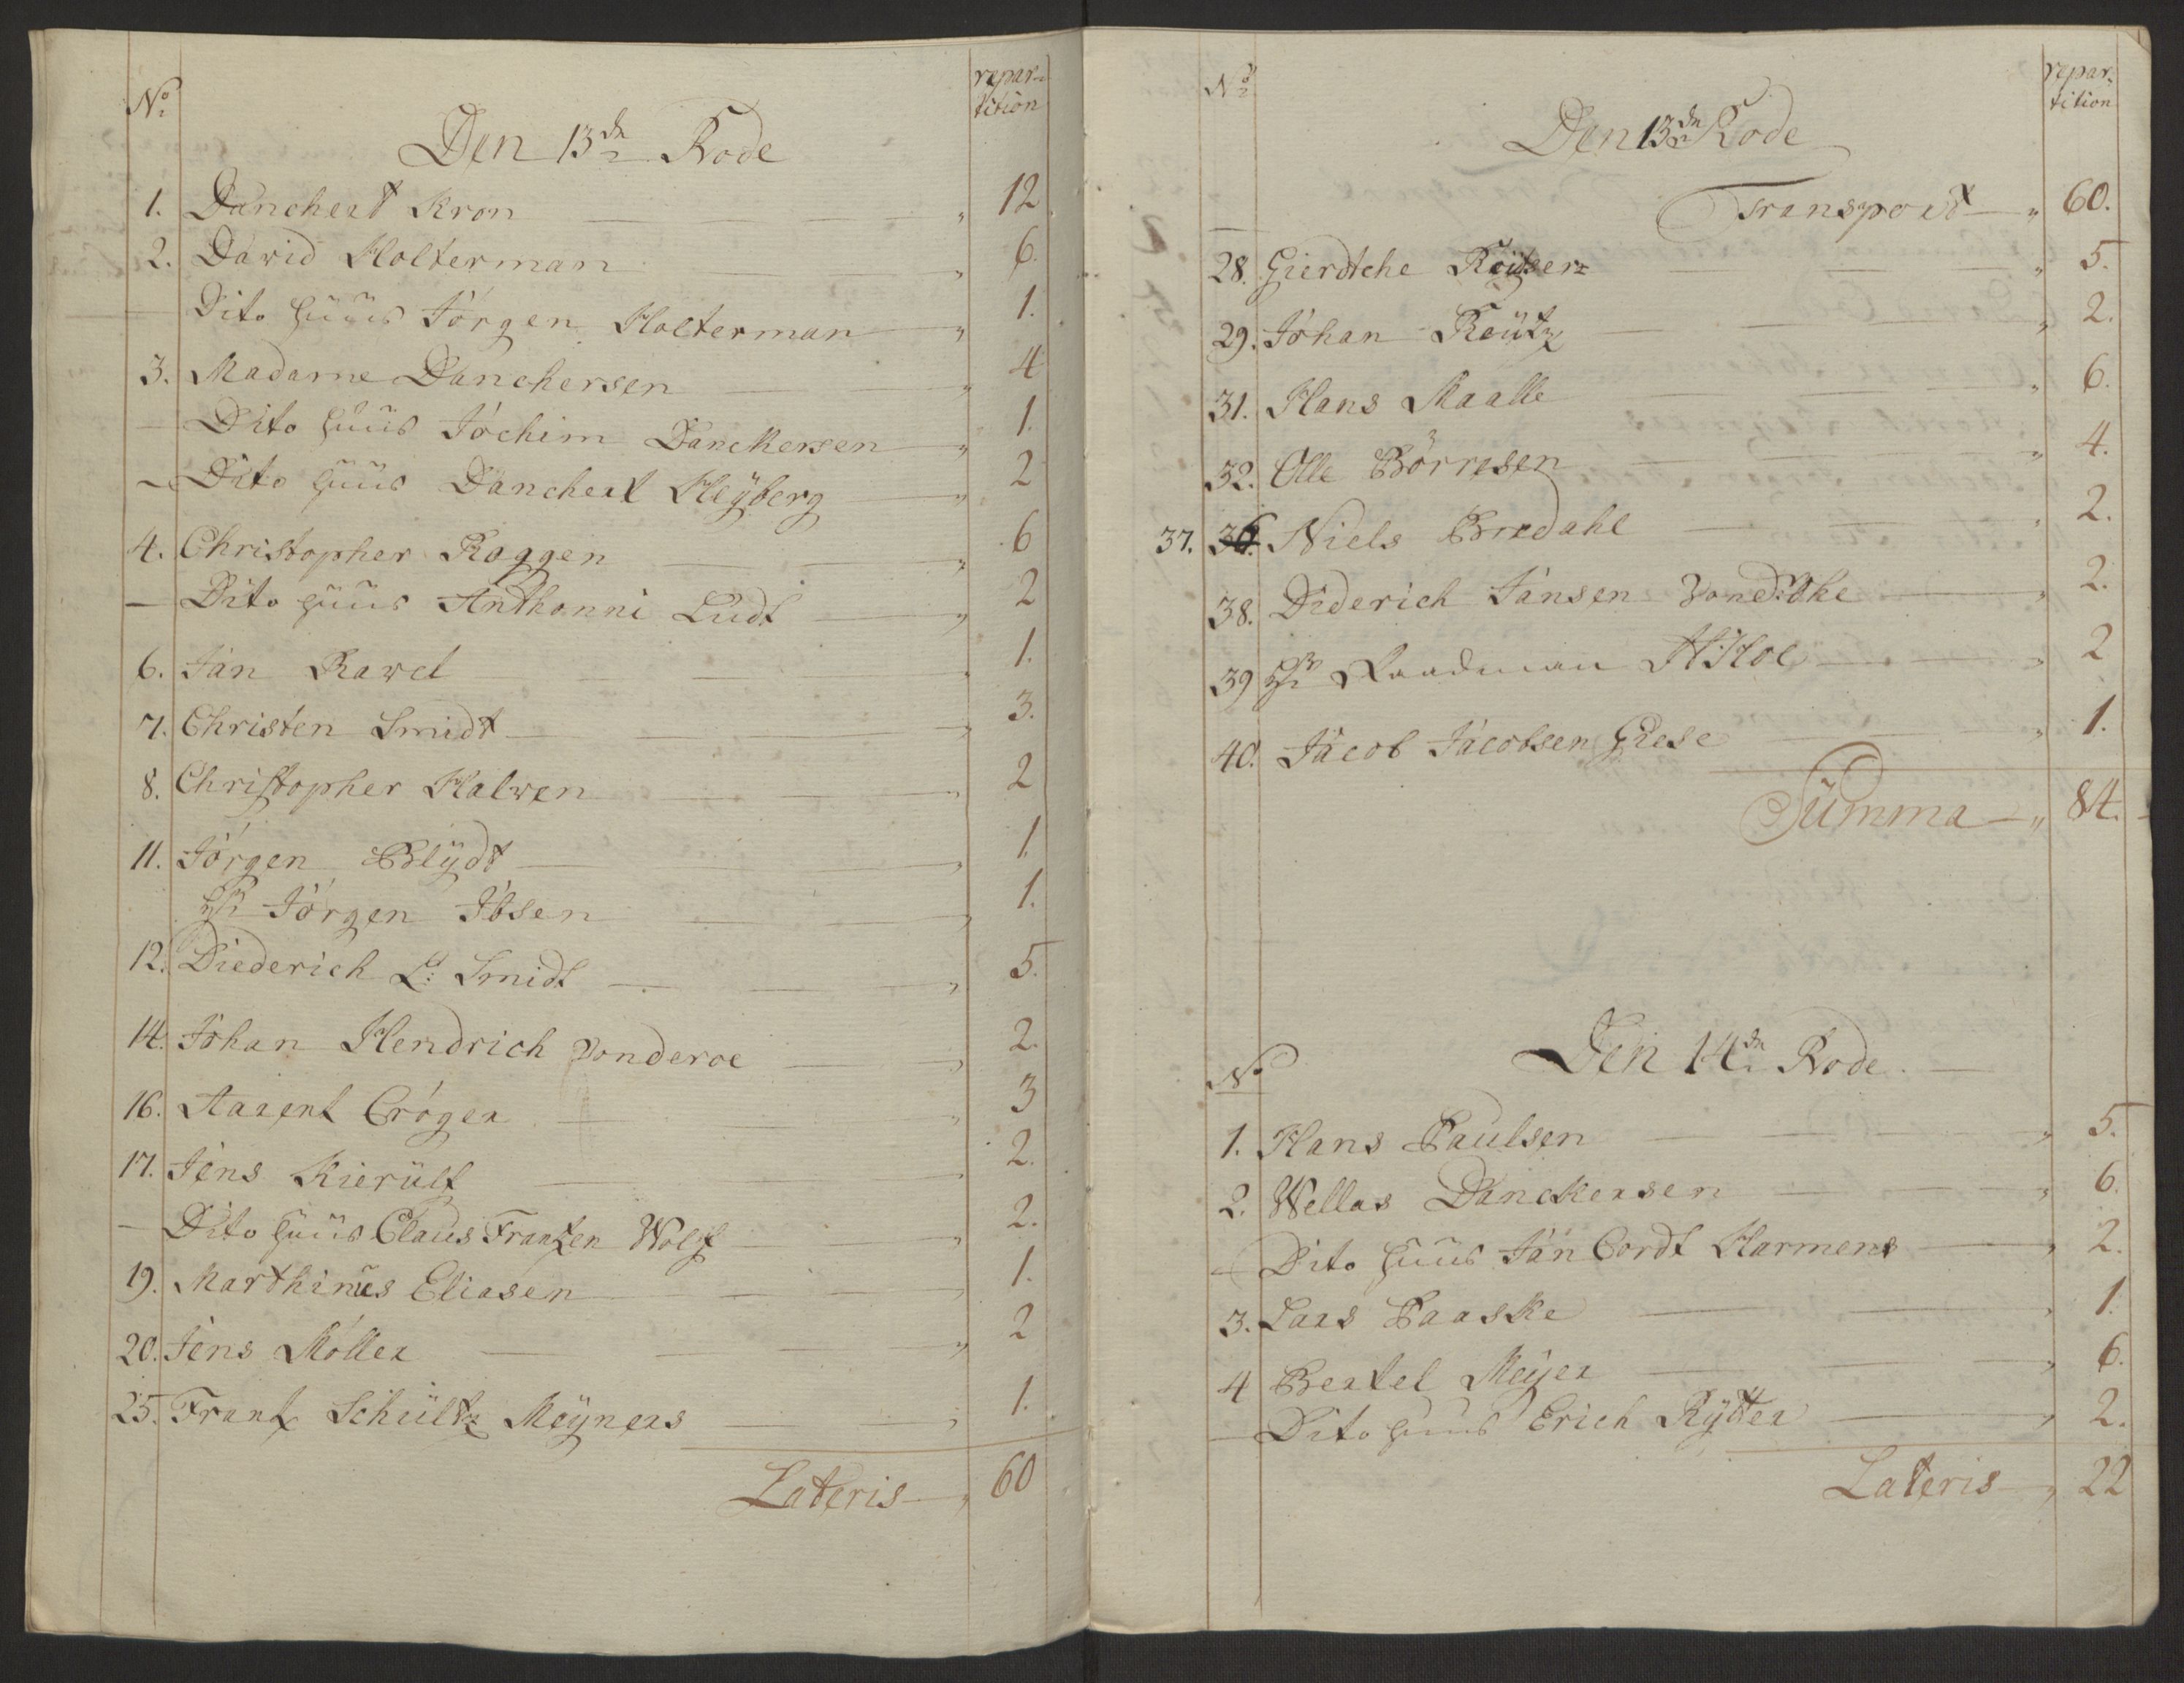 No
repar-
tition
Den 13de Rode
1. Danchert Kron " 12
2. David Holterman " 6.
— Dito huus Jörgen Holterman " 1.
3. Madame Danchersen " 4
— Dito huus Jochim Danckersen " 1.
— Dito huus Danchert Heÿberg " 2
4. Christopher Roggen " 6
— Dito huus Anthonni Ludt " 2
6. Jan Rawel " 1.
7. Christen Smidt " 3.
8. Christopher Halwen " 2
11. Jörgen Blÿdt " 1.
Hr Jörgen Ibsen " 1.
12. Diederich L: Smidt " 5.
14. Johan Hendrich Vonderoe " 2.
16. Aarent Cröger " 3
17. Jens Kierülf " 2.
— Dito huus Claus Frantzen Wolf " 2.
19. Marthinus Eliasen " 1.
20. Jens Möller " 2
25. Frantz Schültz Meÿners " 1.
Lateris " 60
No
repar-
tition
Den 13de Rode
Transport " 60.
28. Gierdtche " 5.
29. Johan Reütz " 2.
31. Hans Maalle " 6.
32. Olle Börresen " 4.
37. 36. Niels Bredahl " 2.
38. Diderich Jansen " 2.
39 Hr Raadman Hoe " 2
40. Jacob Jacobsen Giese " 1.
Summa " 84.
No
Den 14de Rode
1. Hans Paulsen " 5.
2. Wellas Danckersen " 6.
— Dito huus Jan Cordt Harmens " 2.
3. Lars Paaske " 1.
4 Bertel Meÿer " 6.
— Dito huus Erich Rÿtter " 2.
Lateris " 22